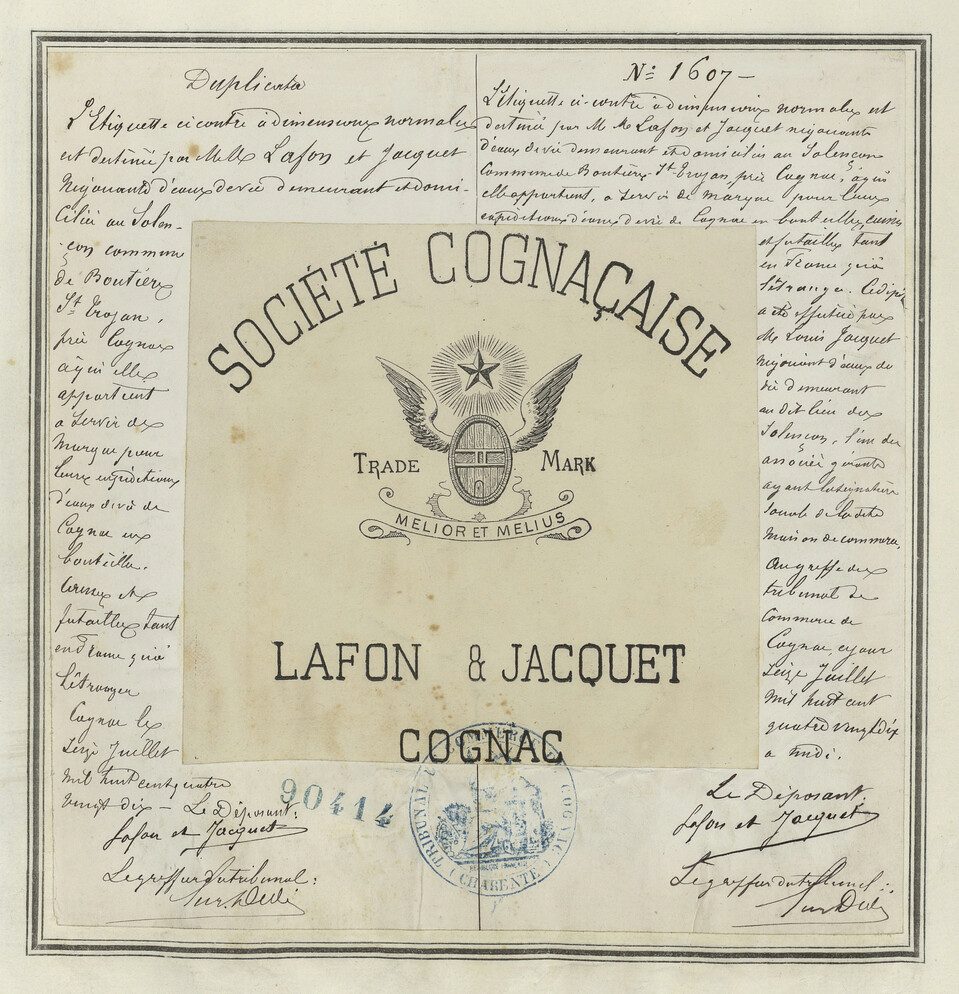 Duplicata
L'Etiquette ci contre a dimensions normales
est destinée par MM Lafon et Jacquet
Négociants d'eaux de vie demeurant et domi-
ciliés au Solen-
çon commune
de Boutiers
St Trojan,
près Cognac
à qui elle
appartient
a servir de
Marque pour
leurs expéditions
d'eaux de vie de
Cognac en
bouteilles,
caisses et
futailles tant
en France qu'à
L'étranger
Cognac le
Seize Juillet
Mil huit cent quatre
vingt dix — Le Déposant:
Lafon et Jacquet
Le greffier du tribunal:
No 1607 —
L'Etiquette ci-contre à dimensions normales est
destinée par M M Lafon et Jacquet négociants
d'eaux de vie demeurant et domiciliés au Solençon
Commune de Boutiers - St Trojan, près Cognac, à qui
elle appartient, a servir de marque pour leurs
expéditions d'eaux de vie de Cognac en bouteilles, caisses
et futailles tant
en France qu'à
l'étranger. Ce dépôt
a été effectué par
Mr Louis Jacquet
négociant d'eaux de
vie demeurant
au dit lieu de
Solençon, l'un des
associés gérants
ayant la signature
sociale de la dite
maison de commerce,
au greffe du
tribunal de
Commerce de
Cognac, ce jour
Seize Juillet
Mil huit cent
quatre vingt dix
a midi.
Le Déposant.
Lafon et Jacquet
Le greffier du tribunal:
SOCIÉTÉ COGNAÇAISE
TRADE MARK
MELIOR ET MELIUS
LAFON & JACQUET
COGNAC
90414
TRIBUNAL DE COMMERCE DE COGNAC
(CHARENTE)